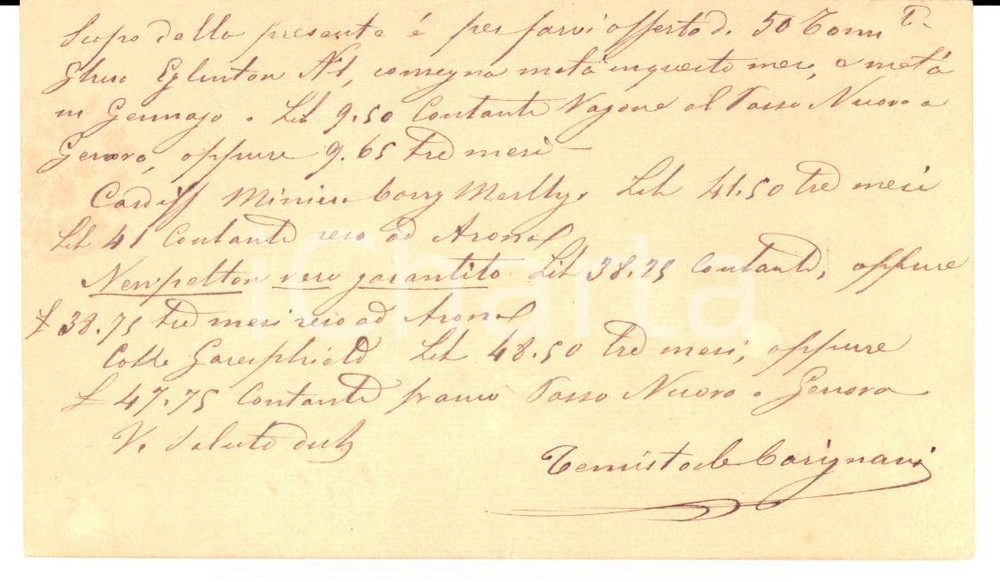 Scopo della presente é per farvi offerta d. 50 Tonn T.
Ghisa Eglinton N 1, consegna metá in questo mese, e metá
in Gennajo a Lit 9.50 Contanti Vagone al Passo Nuovo a
Genova, oppure 9.65 tre mesi —
Cardiff Miniera Corry Merthyr Lit 41.50 tre mesi
Lit 41 Contanti reso ad Arona
Newpelton vero garantito Lit 38.25 Contanti, oppure
£ 38.75 tre mesi reso ad Arona
Coke Garesfhield Lit 48.50 tre mesi, oppure
£ 47.75 Contanti franco Passo Nuovo a Genova
Vi Saluto
Temistocle Carignani
iCharta